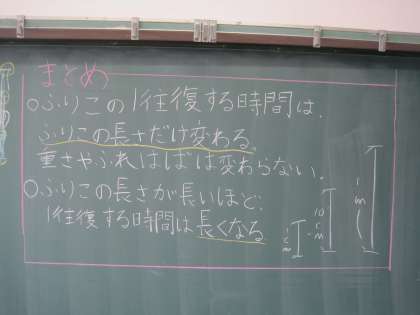 まとめ
○ふりこの1往復する時間は、
ふりこの長さだけ変わる。
重さやふれはばは変わらない。
○ふりこの長さが長いほど、
1往復する時間は長くなる